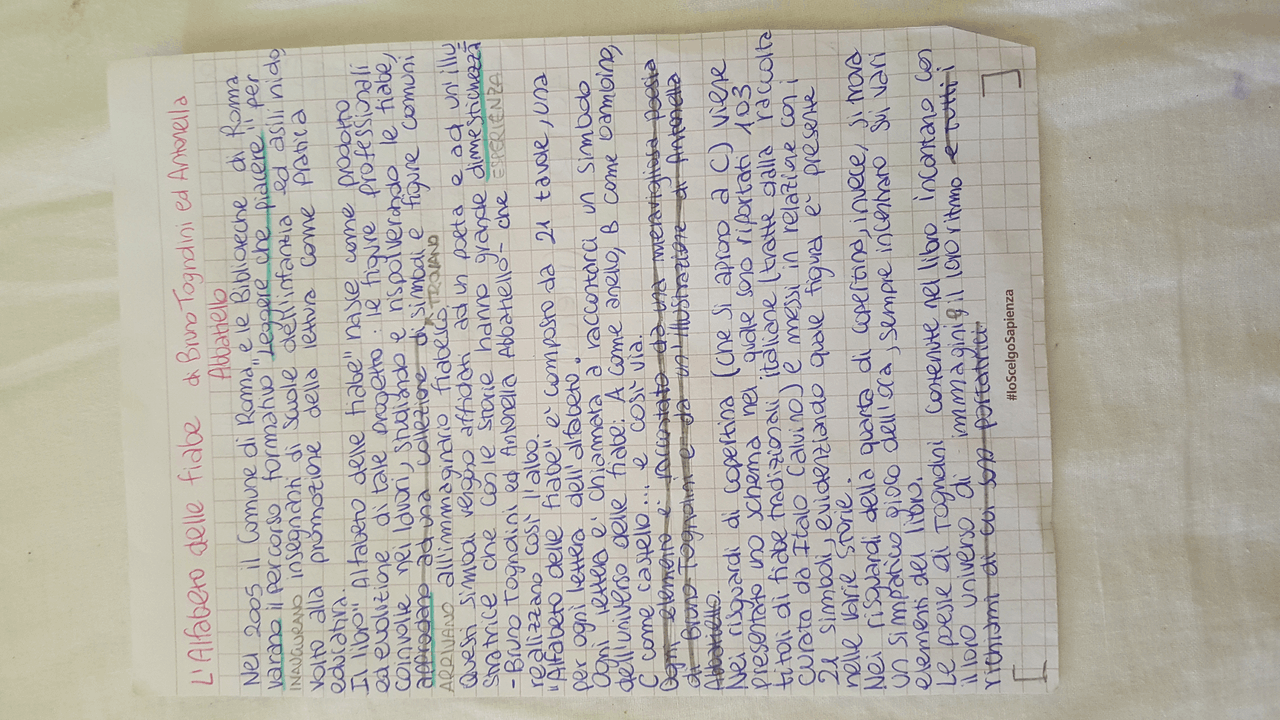 L'Alfabeto delle fiabe di Bruno Tognolini ed Antonella
Abbatiello
Nel 2005 il Comune di Roma, e le Biblioteche di Roma
varano il percorso formativo "Leggere che piacere" per
INAUGURANO insegnanti di Scuole dell'infanzia ed asili nido,
volto alla promozione della lettura come pratica
educativa.
Il libro "Alfabeto delle fiabe" nasce come prodotto
ed evoluzione di tale progetto: le figure professionali
coinvolte nei lavori, studiando e rispolverando le fiabe,
approdano ad una collezione di simboli e figure comuni
ARRIVANO all'immaginario fiabesco. TROVANO
Questi simboli vengono affidati ad un poeta e ad un'illu
stratrice che con le storie hanno grande dimestichezza
- Bruno Tognolini ed Antonella Abbatiello - che ESPERIENZA
realizzano così l'albo.
"Alfabeto delle fiabe" è composto da 21 tavole, una
per ogni lettera dell'alfabeto.
Ogni lettera è chiamata a raccontarci un simbolo
dell'universo delle fiabe: A come anello, B come bambino,
C come castello... e così via.
Ogni elemento è raccontato da una meravigliosa poesia
di Bruno Tognolini e da un'illustrazione di Antonella
Abbatiello.
Nei risguardi di copertina (che si aprono a C) viene
presentato uno schema nel quale sono riportati 103
titoli di fiabe tradizionali italiane (tratte dalla raccolta
curata da Italo Calvino) e messi in relazione con i
21 simboli, evidenziando quale figura è presente
nelle varie storie.
Nei risguardi della quarta di copertina, invece, si trova
un simpatico gioco dell'oca, sempre incentrato sui vari
elementi del libro.
Le poesie di Tognolini contenute nel libro incantano con
il loro universo di immagini, il loro ritmo e tutti i
richiami di cui son portatrici
#IoScelgoSapienza